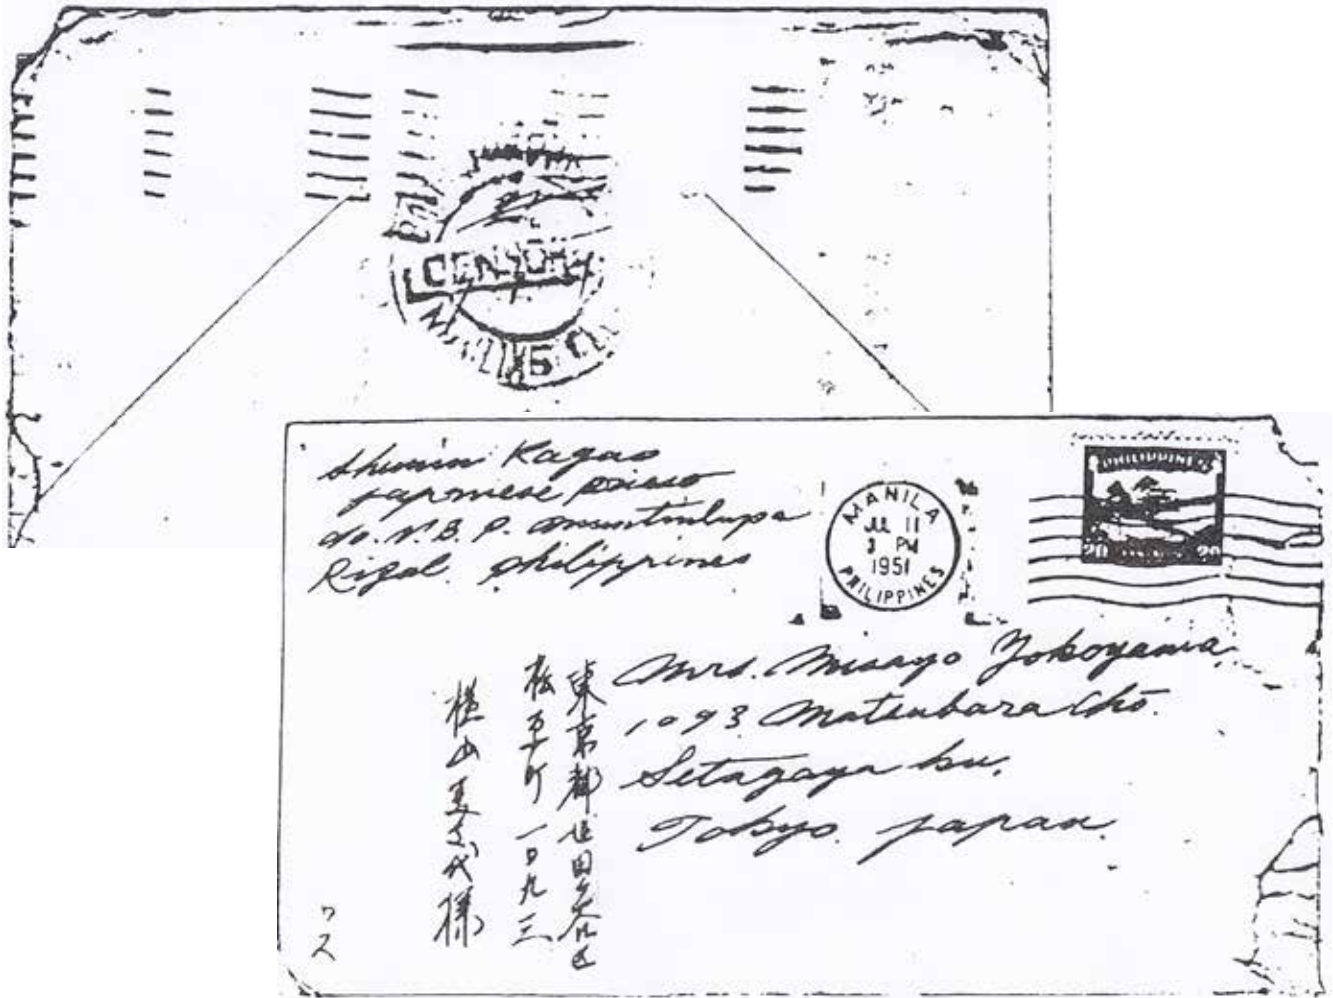 CENSOR
Shunin Kagao
Japanese Prisso
c/o. N. B. P. Muntinlupa
Rizal. Philippines
MANILA
JUL 11
PM
1951
PHILIPPINES
PHILIPPINES
20 20
Mrs. Misayo Yokoyama
1093 Matsubara Cho.
Setagaya ku.
Tokyo. Japan.
東京都世田谷区
松原町一〇九三
横山美さ代様